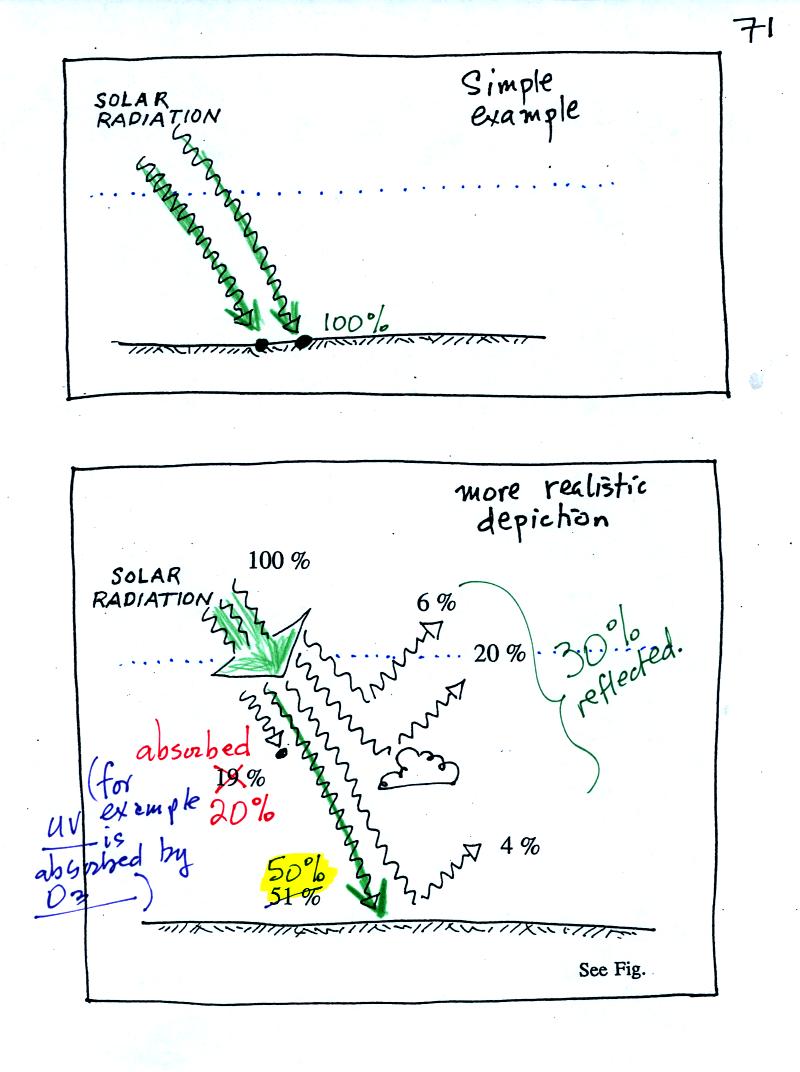 71
SOLAR
RADIATION
Simple
example
100%
more realistic
depiction
100 %
SOLAR
RADIATION
6 %
20 %
30%
reflected.
absorbed
19 %
20%
(for
example
UV is
absorbed by
O3 )
4 %
50%
51 %
See Fig.